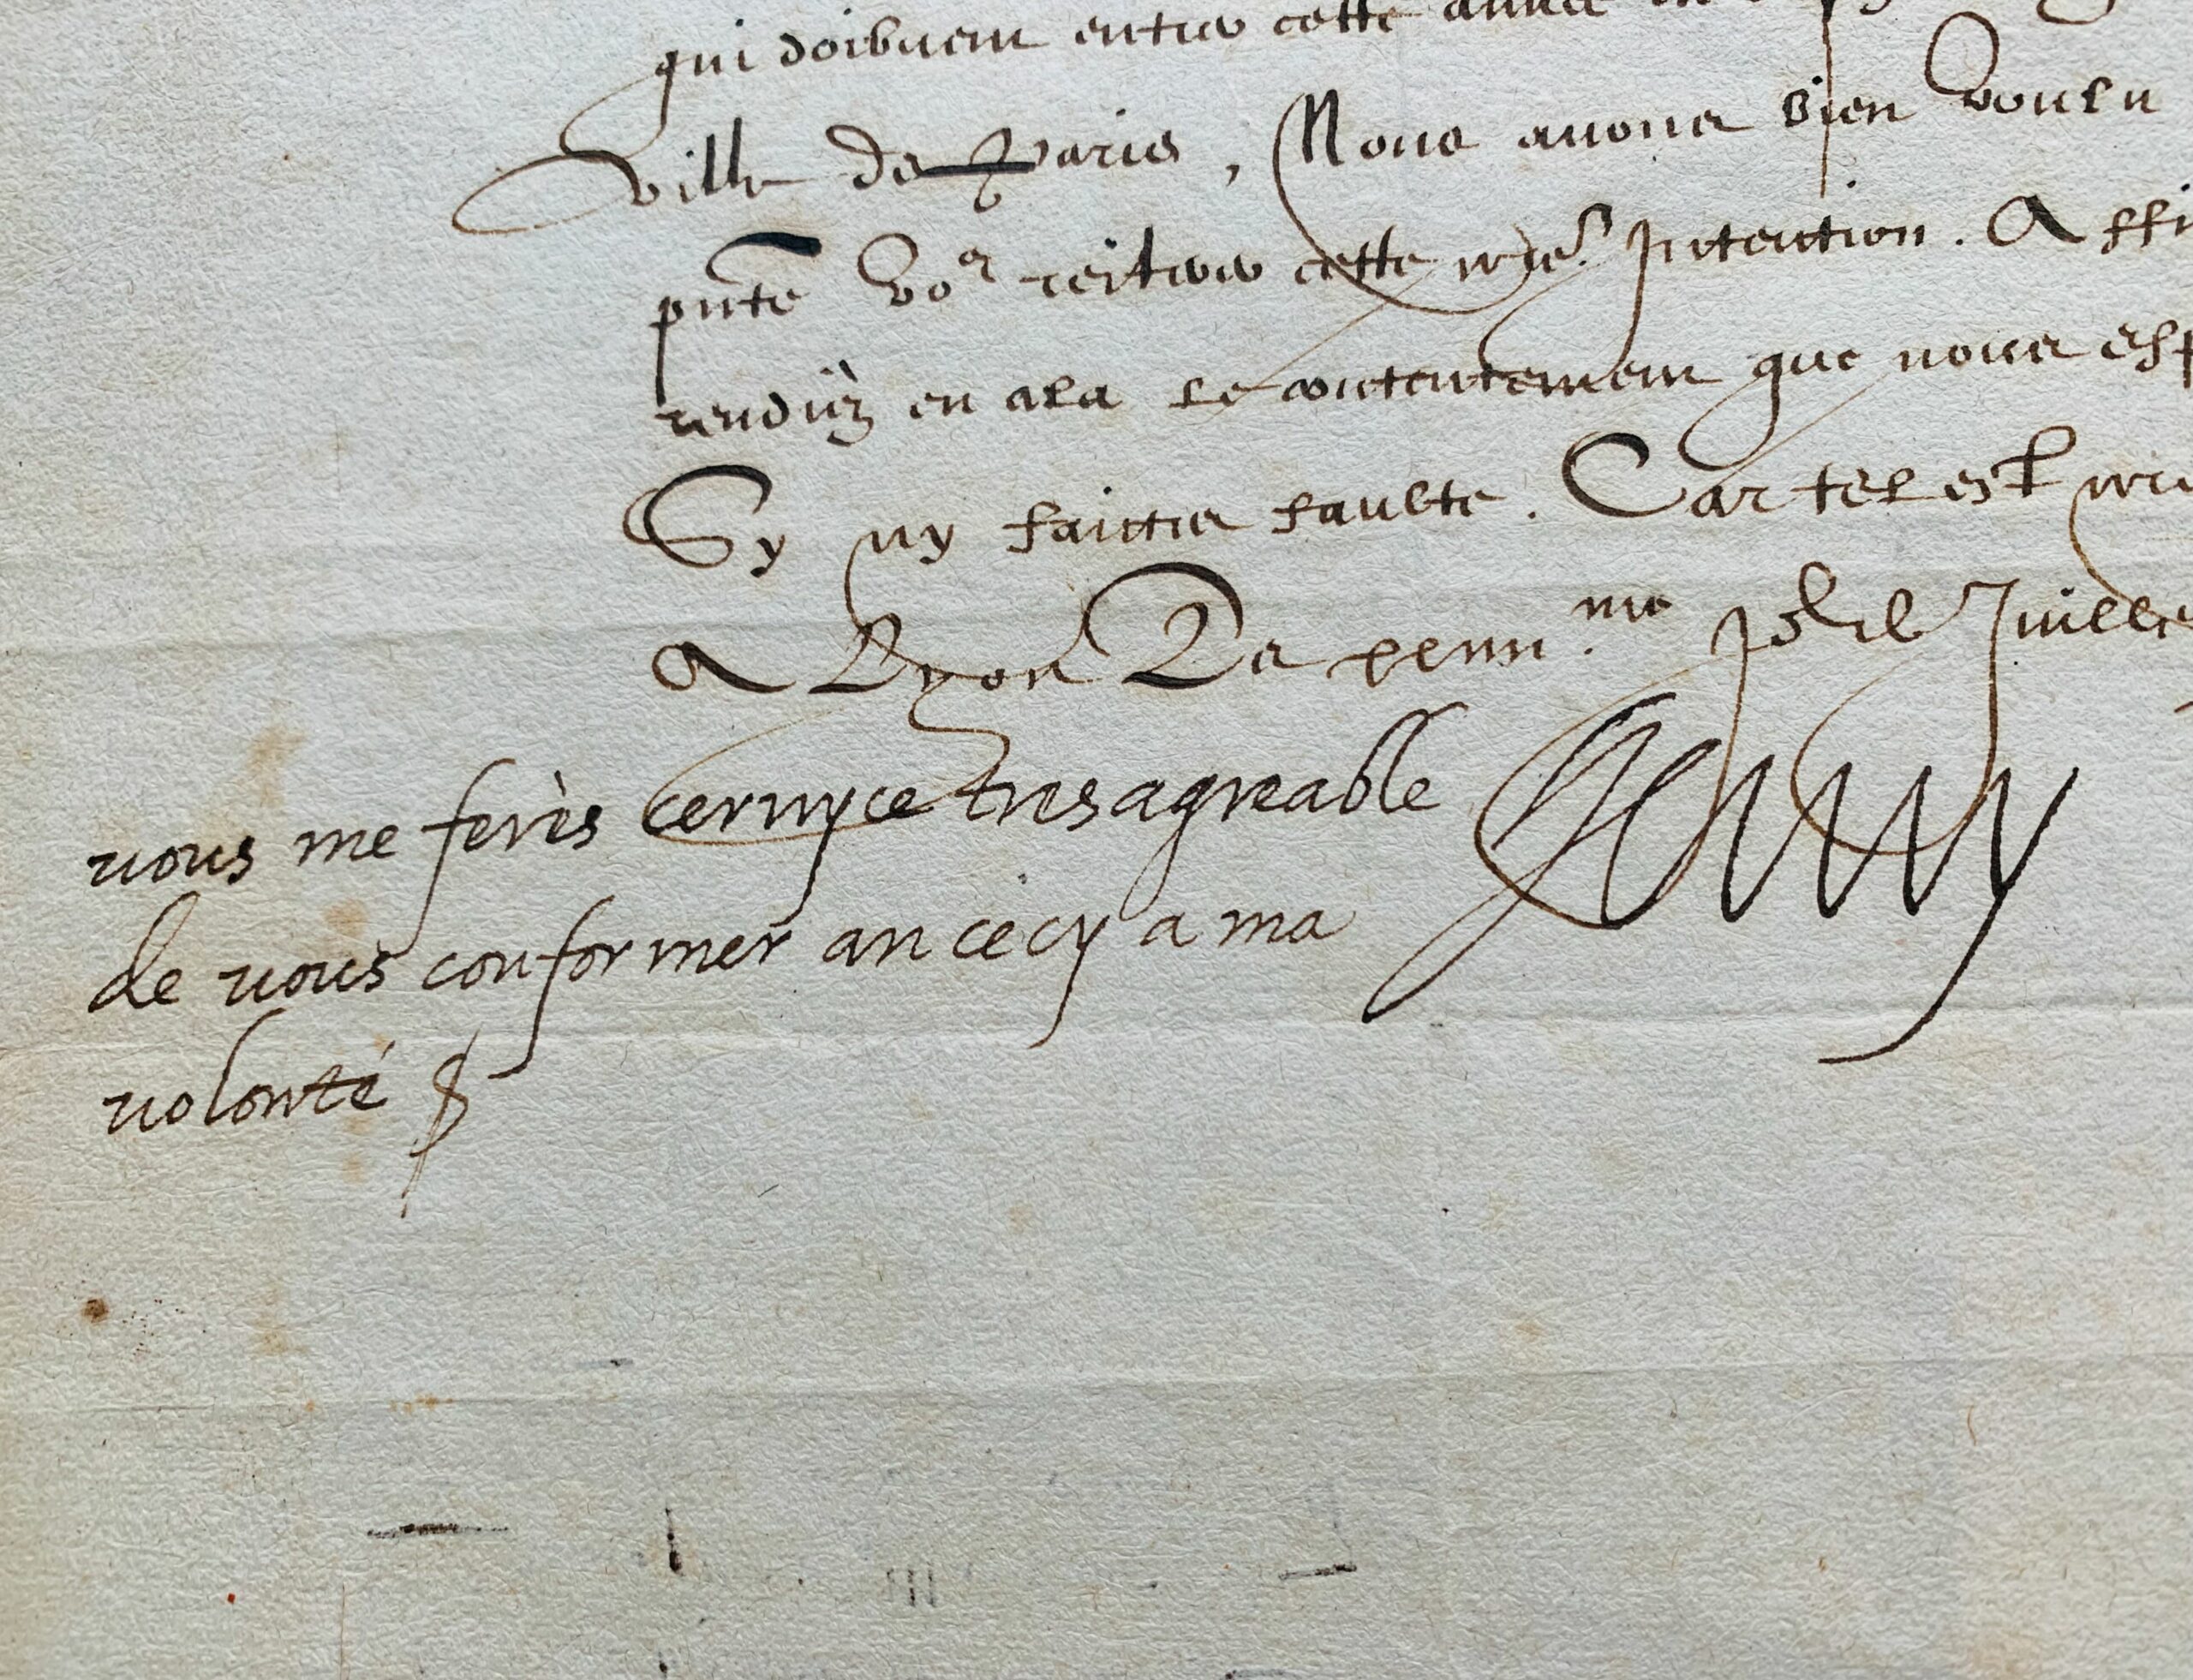 qui doibuent entrer cette annee en
ville de Paris, Nous auons bien voulu
pnte vos reiterer cette nre Intention. Affi
rendiez en cela le contentement que nous esp
Sy ny faictes faulte. Car tel est nre
A Lyon Le xxiiii.me Jor de Juillet
vous me ferès ceruyce tres agreable Henry
de vous conformer an cecy a ma
volonté $